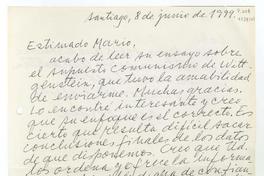 Santiago, 8 de junio de 1999.
Estimado Mario,
acabo de leer su ensayo sobre
el supuesto comunismo de Witt-
genstein, que tuvo la amabilidad
de enviarme. Muchas gracias.
Lo encontré interesante y creo
que su enfoque es el correcto. Es
cierto que resulta difícil sacar
conclusiones finales de los datos
de que disponemos. Creo que Ud.
los ordena y ofrece la informa